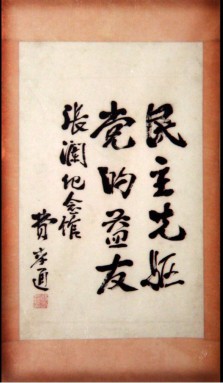 民主先驱
党的益友
张澜纪念馆
费孝通